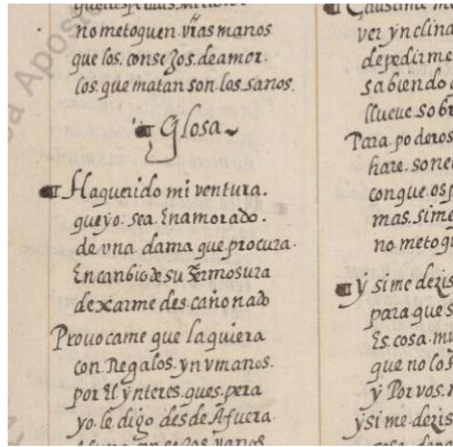 no metoquen. vr̃as manos
que los. consejos. deamor.
los. que matan son. los. sanos.
Glosa
Haquerido mi ventura.
queyo. sea. Enamorado.
de vna dama que procura.
En canbio de su Fermosura
dexarme des cañonado
Prouocame que laquiera
con Regalos. ynvmanos.
por El ynteres. ques. pera
yo. le digo desde Afuera.
ver ynclina
depedirme
sabiendo
llueue sobr
Para. poderos
hare. sone
conque. os p
mas. sime
no metoq
ý sime dezis
para que s
Es. cosa. mu
que no los
ý Por vos.
ýsi me. dezis